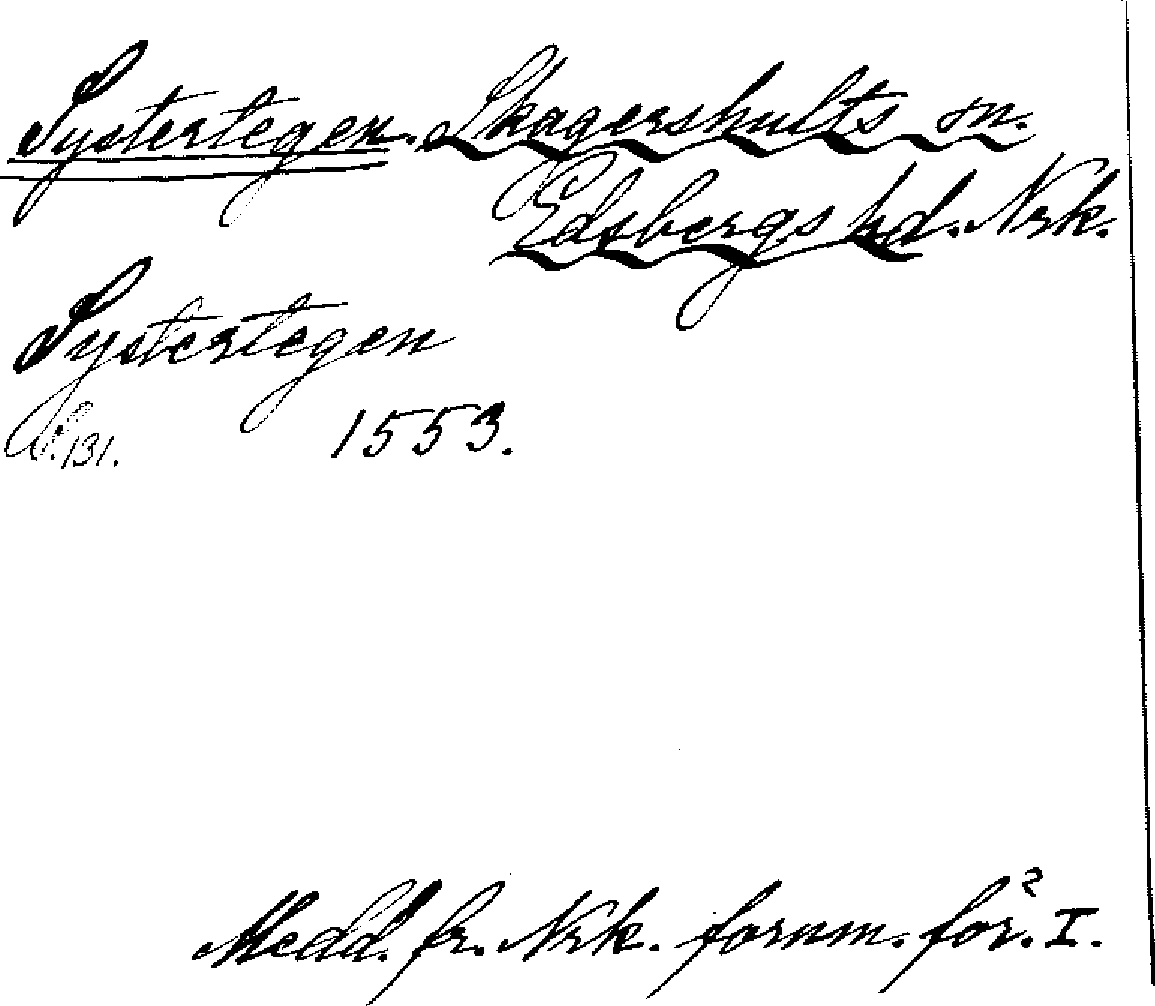 Systertegen. Skagershults sn.
Edsbergs hd. Nrk.
Systertegen
S. 131. 1553.
Medd. fr. Nrk. fornm. för. I.